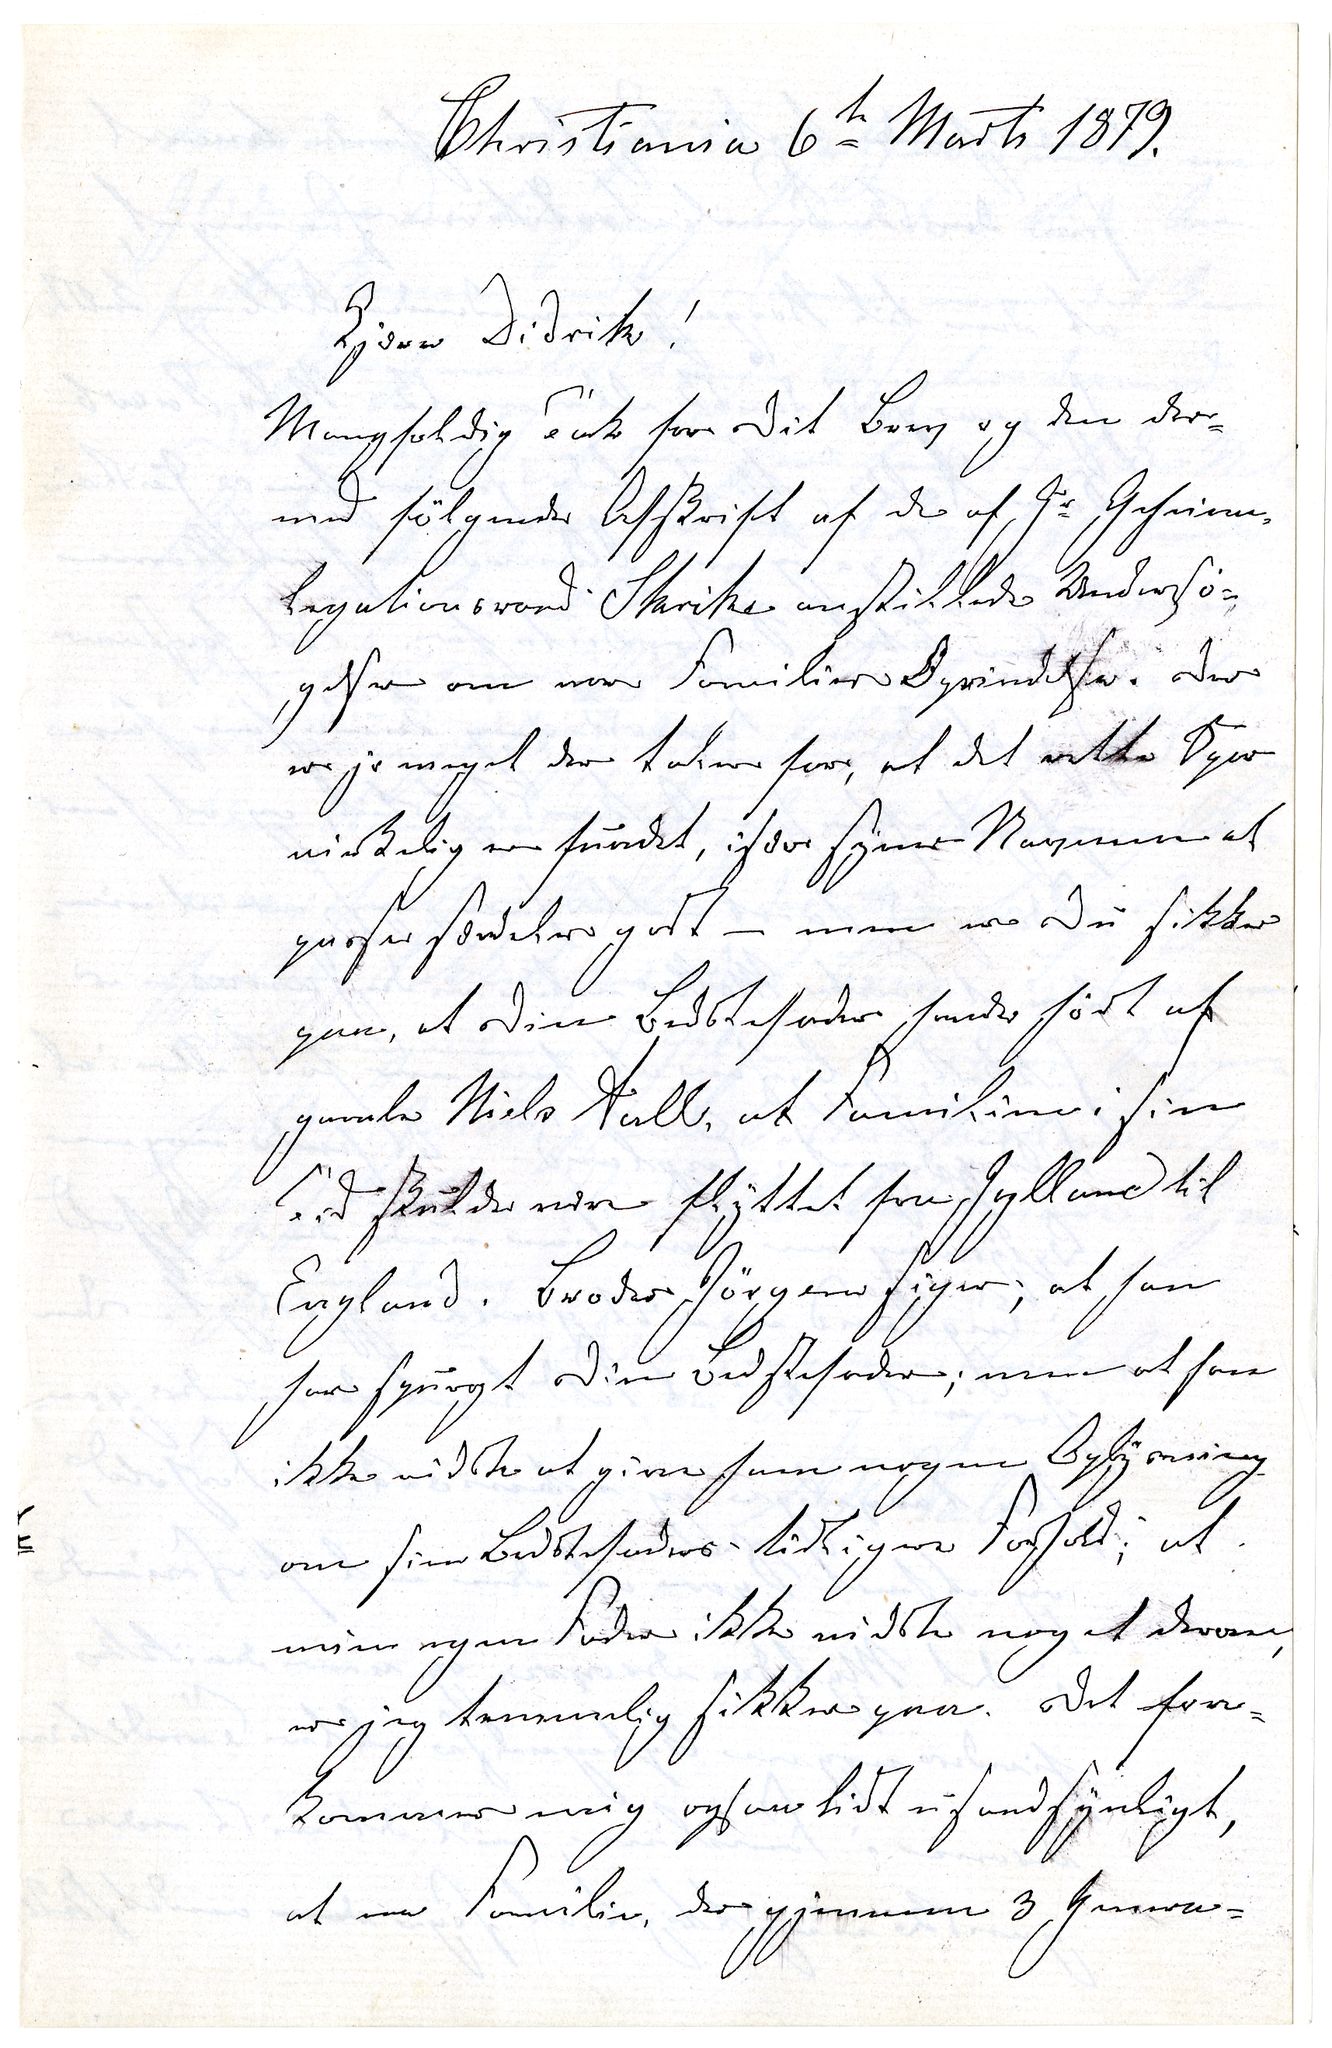 Christiania 6te Marts 1879.
Kjære Didrik!
Mangfoldig Tak for Dit Brev og den der=
med følgende Afskrift af de af Hr Geheime
Legationsraad Skrike anstillede Undersø=
gelser om vor Families Oprindelse. Der
er jo meget der taler for, at det rette Spor
virkelig er fundet, især synes Navnene at
passe særdeles godt – men er Du sikker
paa, at Din Bedstefader havde hørt af
gamle Niels Aall, at Familien i sin
Tid skulde være flyttet fra Jylland til
England. Broder Jørgen siger, at han
har spurgt Din Bedstefader; men at han
ikke vidste at give ham nogen Oplysning
om sin Bedstefaders tidligere Forhold; at
min egen Fader ikke vidste noget derom,
er jeg temmelig sikker paa. Det fore=
kommer mig ogsaa lidt usandsynligt,
at en Familie, der gjennem 3 Genera=